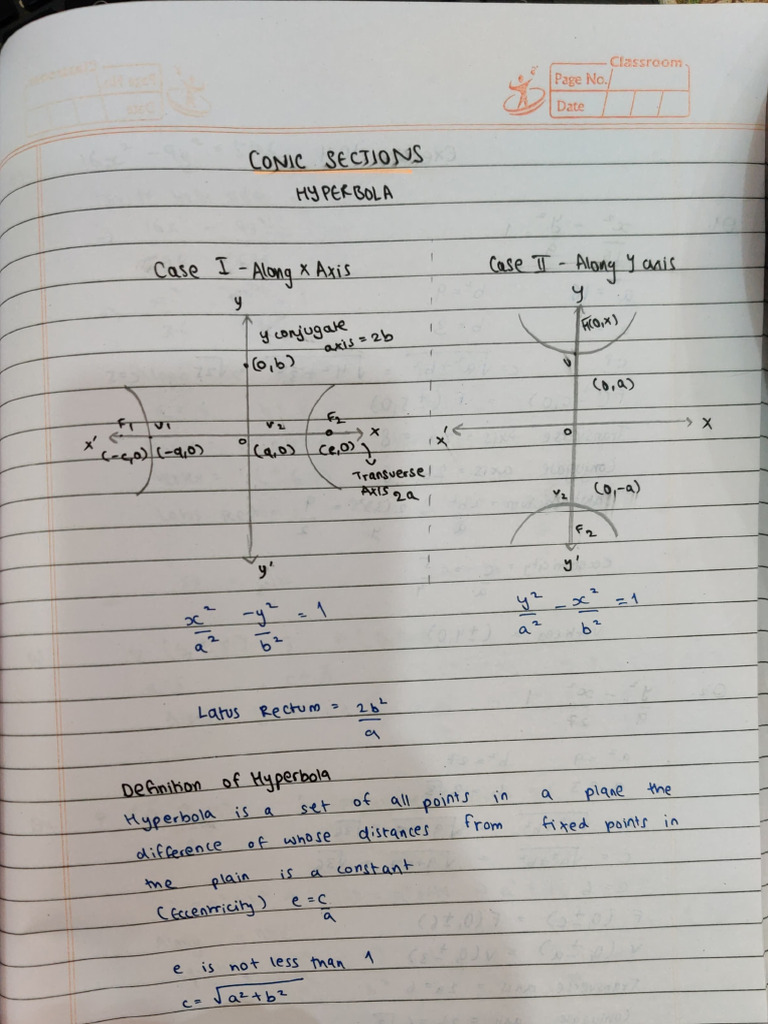 Classroom
Page No.
Date
CONIC SECTIONS
HYPERBOLA
Case I - Along x Axis
Case II - Along y axis
y
y conjugate
axis = 2b
(0,b)
F1 V1 V2 F2
x' 0 x
(-c,0) (-a,0) (a,0) (c,0)
Transverse
Axis 2a
y'
y
F(0,x)
V
(0,a)
x' 0 x
V2 (0,-a)
F2
y'
x²/a² -y²/b² = 1
y²/a² - x²/b² = 1
Latus Rectum = 2b²/a
Definition of Hyperbola
Hyperbola is a set of all points in a plane the
difference of whose distances from fixed points in
the plain is a constant
(Eccentricity) e = c/a
e is not less than 1
c = √a²+b²